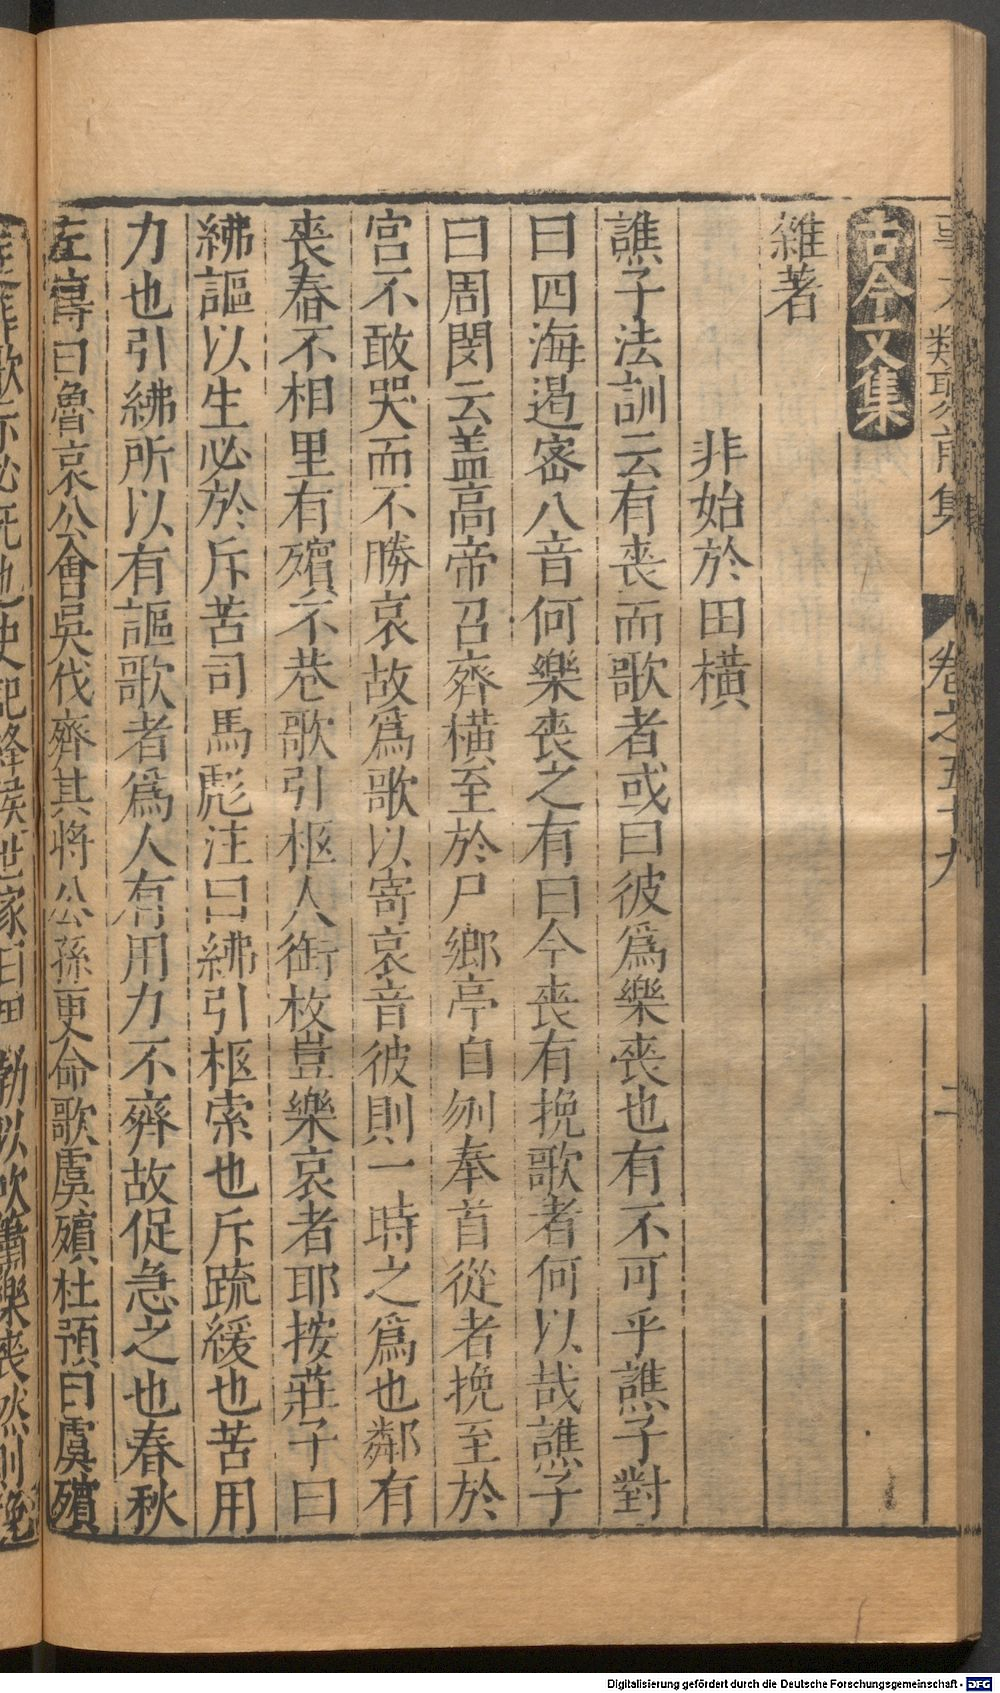 事文類聚前集 卷之五十九 二
古今文集
雜著
非始於田橫
譙子法訓云有喪而歌者或曰彼爲樂喪也有不可乎譙子對
曰四海遏密八音何樂喪之有曰今喪有挽歌者何以哉譙子
曰周閔云盖高帝召齊橫至於尸鄉亭自刎奉首從者挽至於
宮不敢哭而不勝哀故爲歌以寄哀音彼則一時之爲也鄰有
喪舂不相里有殯不巷歌引柩人銜枚豈樂哀者耶按莊子曰
紼謳以生必於斥苦司馬彪注曰紼引柩索也斥疏緩也苦用
力也引紼所以有謳歌者爲人有用力不齊故促急之也春秋
左傳曰魯哀公會吳伐齊其將公孫更命歌虞殯杜預曰虞殯
史記絳侯世家曰 勃以吹簫樂喪然則挽
Digitalisierung gefördert durch die Deutsche Forschungsgemeinschaft - DFG